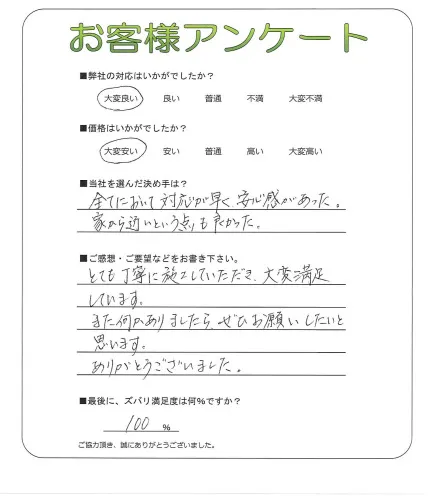 お客様アンケート
■弊社の対応はいかがでしたか？
大変良い 良い 普通 不満 大変不満
■価格はいかがでしたか？
大変安い 安い 普通 高い 大変高い
■当社を選んだ決め手は？
全てにおいて対応が早く、安心感があった。
家から近いという点も良かった。
■ご感想・ご要望などをお書き下さい。
とても丁寧に施工していただき、大変満足
しています。
また何かありましたら、ぜひお願いしたいと
思います。
ありがとうございました。
■最後に、ズバリ満足度は何％ですか？
100 %
ご協力頂き、誠にありがとうございました。